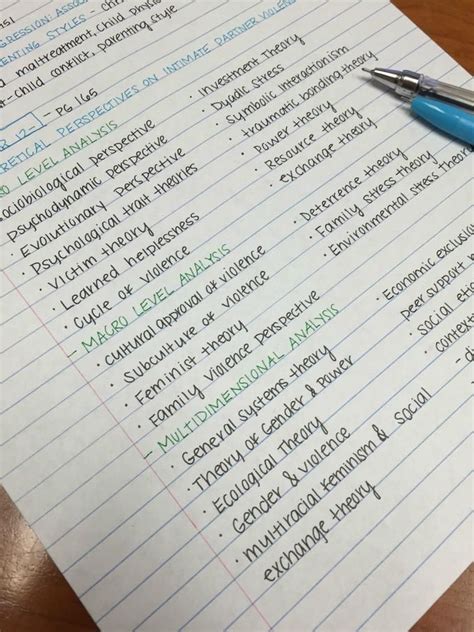 151
GRESSION: ASSOC
ENTING STYLES - chi
maltreatment, child physic
t-child conflict, parenting style
R 12-] - PG 165
RETICAL PERSPECTIVES ON INTIMATE PARTNER VIOLENC
RO LEVEL ANALYSIS
ociobiological perspective
psychodynamic perspective
· Evolutionary perspective
· Psychological trait theories
· Victim theory
· Learned helplessness
· Cycle of violence
- MACRO LEVEL ANALYSIS
· Cultural approval of violence
· Subculture of violence
· Feminist theory
· Family violence perspective
- MULTIDIMENSIONAL ANALYSIS
· General systems theory
· Theory of Gender & Power
· Ecological Theory
· Gender & violence
· multiracial feminism & social
exchange theory
· Investment Theory
· Dyadic Stress
· Symbolic interactionism
· traumatic bonding theory
· Power theory
· Resource theory
· exchange theory
· Deterrence theory
· Family stress theory
· Environmental stress Theor
· Economic exclusio
peer support
· social etio
· context